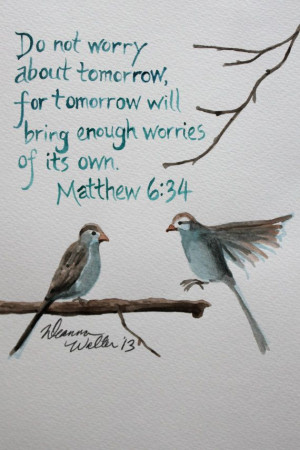 Do not worry
about tomorrow,
for tomorrow will
bring enough worries
of its own.
Matthew 6:34
Deanna
Weller '13